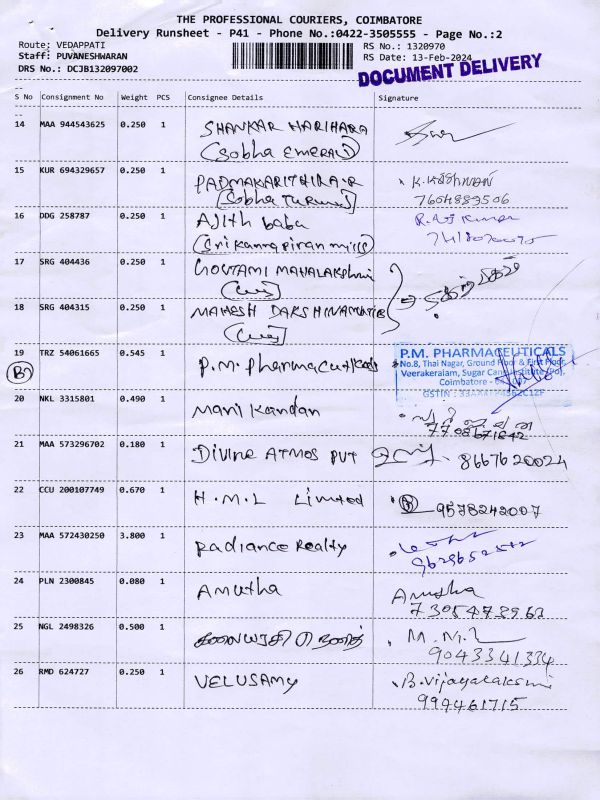 THE PROFESSIONAL COURIERS, COIMBATORE
Delivery Runsheet - P41 - Phone No.:0422-3505555 - Page No.:2
Route: VEDAPPATI
Staff: PUVANESHWARAN
DRS No.: DCJB132097002
RS No.: 1320970
RS Date: 13-Feb-2024
DOCUMENT DELIVERY
S No Consignment No Weight PCS Consignee Details Signature
14 MAA 944543625 0.250 1 SHANKAR HARIHARA
(Sobha EMERALD)
15 KUR 694329657 0.250 1 PADMAKARITHIRA.R
(Sobha
7604883506
16 DDG 258787 0.250 1 AJith baba
(Sri kannapiran mills)
17 SRG 404436 0.250 1 GOWTAMI MAHALAKSHMI
18 SRG 404315 0.250 1 MAHESH DAKSHINAMURTHI
19 TRZ 54061665 0.545 1 P.M. Pharmaceuticals
P.M. PHARMACEUTICALS
No.8, Thai Nagar, Ground Floor & First Floor,
Veerakeralam, Sugar Cane Institute (Po),
Coimbatore - 641 007
GSTIN :
20 NKL 3315801 0.490 1 Mani kandan
7708671642
21 MAA 573296702 0.180 1 Divine ATMOS PVT
8667620024
22 CCU 200107749 0.670 1 H.M.L Limited
9578242007
23 MAA 572430250 3.800 1 Radiance Realty
24 PLN 2300845 0.080 1 Amutha Amutha
25 NGL 2498326 0.500 1
9043341334
26 RMD 624727 0.250 1 VELUSAMY B.Vijayalaksmi
999461715